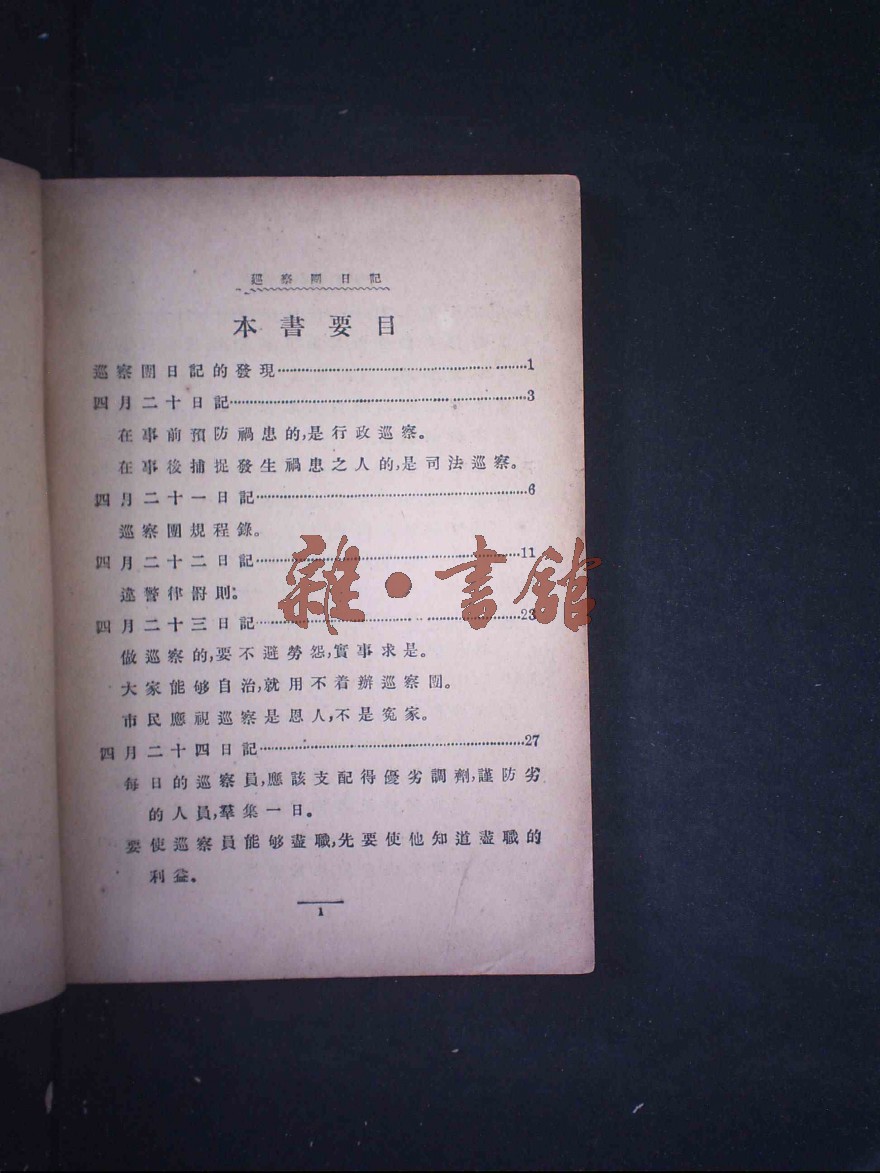 巡察團日記
本書要目
巡察團日記的發現……1
四月二十日記……3
在事前預防禍患的,是行政巡察。
在事後捕捉發生禍患之人的,是司法巡察。
四月二十一日記……6
巡察團規程錄。
四月二十二日記……11
違警律罸則。
四月二十三日記……23
做巡察的,要不避勞怨,實事求是。
大家能够自治,就用不着辦巡察團。
市民應視巡察是恩人,不是寃家。
四月二十四日記……27
每日的巡察員,應該支配得優劣調劑,謹防劣
的人員,羣集一日。
要使巡察員能够盡職,先要使他知道盡職的
利益。
1
雜·書館